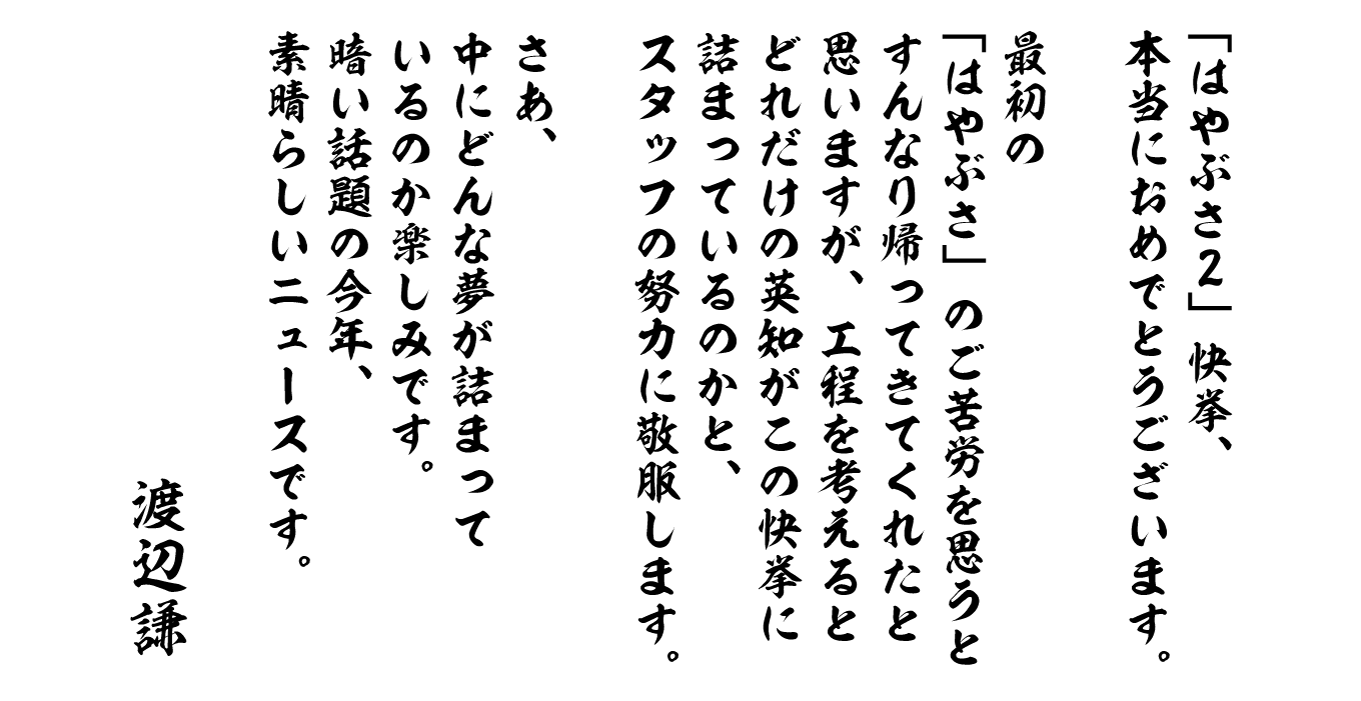 「はやぶさ2」快挙、
本当におめでとうございます。
最初の
「はやぶさ」のご苦労を思うと
すんなり帰ってきてくれたと
思いますが、工程を考えると
どれだけの英知がこの快挙に
詰まっているのかと、
スタッフの努力に敬服します。
さあ、
中にどんな夢が詰まって
いるのか楽しみです。
暗い話題の今年、
素晴らしいニュースです。
渡辺謙